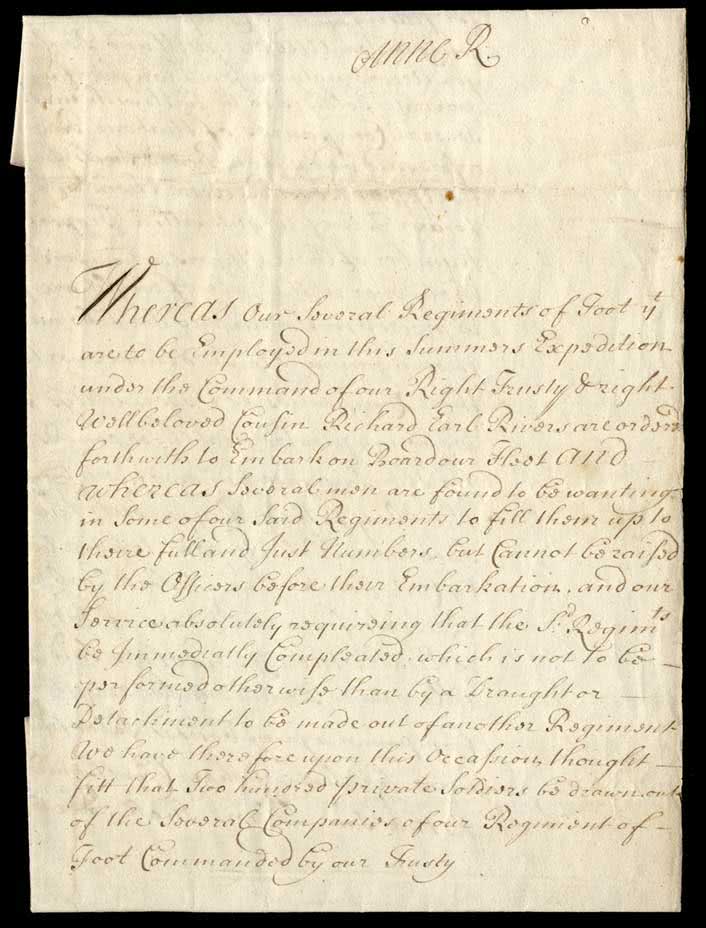 Anne R
Whereas our Several Regiments of Foot yt
are to be Employed in this Summers Expedition
under the Command of our Right Trusty & right
Wellbeloved Cousin Richard Earl Rivers are orderd
forthwith to Embark on Board our Fleet And
whereas Several men are found to be wanting
in Some of our Said Regiments to fill them up to
theire full and Just Numbers, but Cannot be raised
by the Officers before their Embarkation, and our
Service absolutely requireing that the Sd. Regimts
be Immediatly Compleated, which is not to be
performed otherwise than by a Draught or
Detachment to be made out of another Regiment
We have therefore upon this Occassion, thought
fitt that Two hundred private Soldiers be drawn out
of the Several Companies of our Regiment of
Foot Commanded by our Trusty